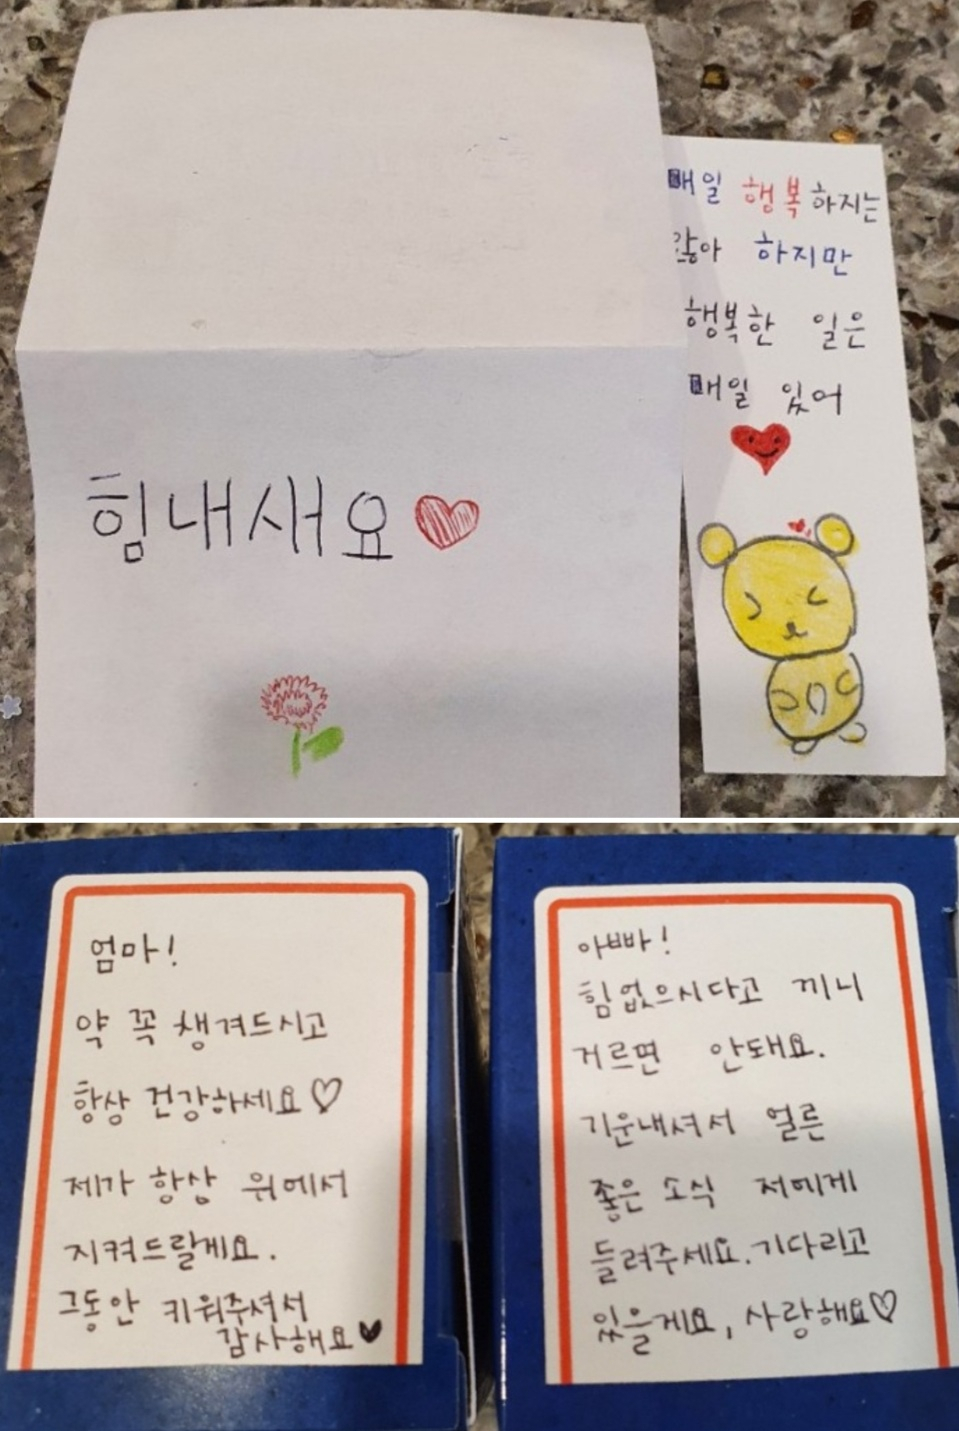 힘내새요
매일 행복하지는
않아 하지만
행복한 일은
매일 있어
엄마!
약 꼭 챙겨드시고
항상 건강하세요♡
제가 항상 위에서
지켜드랄게요.
그동안 키워주셔서
감사해요♥
아빠!
힘없으시다고 끼니
거르면 안돼요.
기운내셔서 얼른
좋은 소식 저에게
들려주세요. 기다리고
있을게요, 사랑해요♡